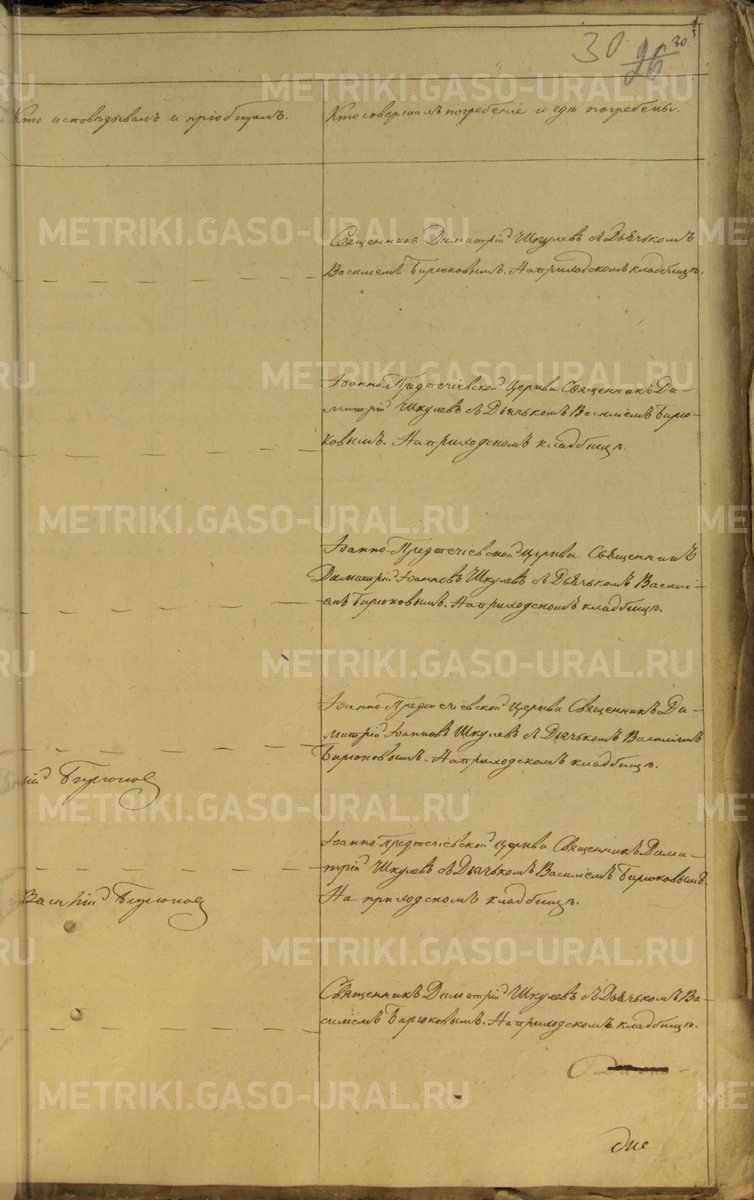 30 96 30
Кто исповѣдывалъ и пріобщалъ.
Кто совершалъ погребеніе и гдѣ погребены.
Священникъ Димитрій Шкулевъ съ Дьячькомъ
Васильемъ Бирюковымъ. На приходскомъ кладбищѣ.
Іоанно-Предтечіевской Церкви Священникъ Ди-
митрій Шкулевъ съ Дьячькомъ Васильемъ Бирю-
ковымъ. На приходскомъ кладбищѣ.
Іоанно-Предтечіевской Церкви Священникъ
Димитрій Іоанновъ Шкулевъ съ Дьячькомъ Васили-
емъ Бирюковымъ. На приходскомъ кладбищѣ.
Іоанно-Предтечіевской Церкви Священникъ Ди-
митрій Іоанновъ Шкулевъ съ Дьячькомъ Василіемъ
Бирюковымъ. На приходскомъ кладбищѣ.
ній Бирюков
Іоанно-Предтечіевской Церкви Священникъ Дими-
трій Шкулевъ съ Дьячькомъ Васильемъ Бирюковымъ.
На приходскомъ кладбищѣ.
Василій Бирюков
Священникъ Димитрій Шкулевъ съ Дьячькомъ Ва-
силіемъ Бирюковымъ. На приходскомъ кладбищѣ.
METRIKI.GASO-URAL.RU